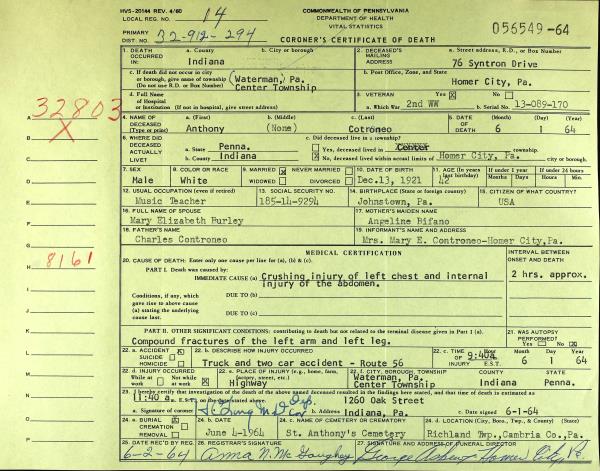 HVS-20144 REV. 4/60
COMMONWEALTH OF PENNSYLVANIA
DEPARTMENT OF HEALTH
VITAL STATISTICS
LOCAL REG. NO. 14
056549-64
PRIMARY
DIST. NO. 32-912-294
CORONER'S CERTIFICATE OF DEATH
1. DEATH OCCURRED IN:
a. County
Indiana
b. City or borough
c. If death did not occur in city or borough, give name of township
(Do not use R.D. or Box Number)
(Waterman,) Pa.
Center Township
d. Full Name of Hospital or Institution (If not in hospital, give street address)
2. DECEASED'S MAILING ADDRESS
a. Street address, R.D., or Box Number
76 Syntron Drive
b. Post Office, Zone, and State
Homer City, Pa.
3. VETERAN Yes X No
a. Which War 2nd WW
b. Serial No. 13-089-170
32803
X
4. NAME OF DECEASED (Type or print)
a. (First)
Anthony
b. (Middle)
(None)
c. (Last)
Cotroneo
5. DATE OF DEATH
(Month) (Day) (Year)
6 1 64
6. WHERE DID DECEASED ACTUALLY LIVE?
a. State Penna.
b. County Indiana
c. Did deceased live in a township?
Yes, deceased lived in Center township
X No, deceased lived within actual limits of Homer City, Pa. city or borough.
7. SEX
Male
8. COLOR OR RACE
White
9. MARRIED X NEVER MARRIED
WIDOWED DIVORCED
10. DATE OF BIRTH
Dec.13, 1921
11. AGE (In years last birthday)
42
If under 1 year
Months Days
If under 24 hours
Hours Min.
12. USUAL OCCUPATION (even if retired)
Music Teacher
13. SOCIAL SECURITY NO.
185-14-9294
14. BIRTHPLACE (State or foreign country)
Johnstown, Pa.
15. CITIZEN OF WHAT COUNTRY?
USA
16. FULL NAME OF SPOUSE
Mary Elizabeth Burley
17. MOTHER'S MAIDEN NAME
Angeline Bifano
18. FATHER'S NAME
Charles Controneo
19. INFORMANT'S NAME AND ADDRESS
Mrs. Mary E. Controneo-Homer City,Pa.
8161
MEDICAL CERTIFICATION
20. CAUSE OF DEATH: Enter only one cause per line for (a), (b) & (c).
INTERVAL BETWEEN ONSET AND DEATH
PART I. Death was caused by:
IMMEDIATE CAUSE (a) Crushing injury of left chest and internal
injury of the abdomen.
2 hrs. approx.
Conditions, if any, which gave rise to above cause (a) stating the underlying cause last.
DUE TO (b)
DUE TO (c)
PART II. OTHER SIGNIFICANT CONDITIONS: contributing to death but not related to the terminal disease given in Part I (a).
Compound fractures of the left arm and left leg.
21. WAS AUTOPSY PERFORMED?
Yes No X
22. a. ACCIDENT X
SUICIDE
HOMICIDE
22. b. DESCRIBE HOW INJURY OCCURRED
Truck and two car accident - Route 56
22. c. TIME OF INJURY
9:40A
E.S.T.
Month Day Year
6 1 64
22. d. INJURY OCCURRED
While at work Not while at work X
22. e. PLACE OF INJURY (e.g., home, farm, factory, street, etc.)
Highway
22. f. CITY, BOROUGH, TOWNSHIP
Waterman, Pa.
Center Township
COUNTY
Indiana
STATE
Penna.
23. I hereby certify that investigation of the death of the above named deceased resulted in the findings here stated, and that time of death is estimated as
11:40 a. E.S.T., on the date stated above.
1260 Oak Street
a. Signature of coroner
b. Address Indiana, Pa.
c. Date signed 6-1-64
24. a. BURIAL X
CREMATION
REMOVAL
24. b. DATE
June 4-1964
24. c. NAME OF CEMETERY OR CREMATORY
St. Anthony's Cemetery
24. d. LOCATION (City, Boro., Twp., & County) (State)
Richland Twp.,Cambria Co.,Pa.
25. DATE REC'D BY REG.
6-2-64
26. REGISTRAR'S SIGNATURE
Anna N. McGaughey
27. SIGNATURE AND ADDRESS OF FUNERAL DIRECTOR
George Homer City, Pa.